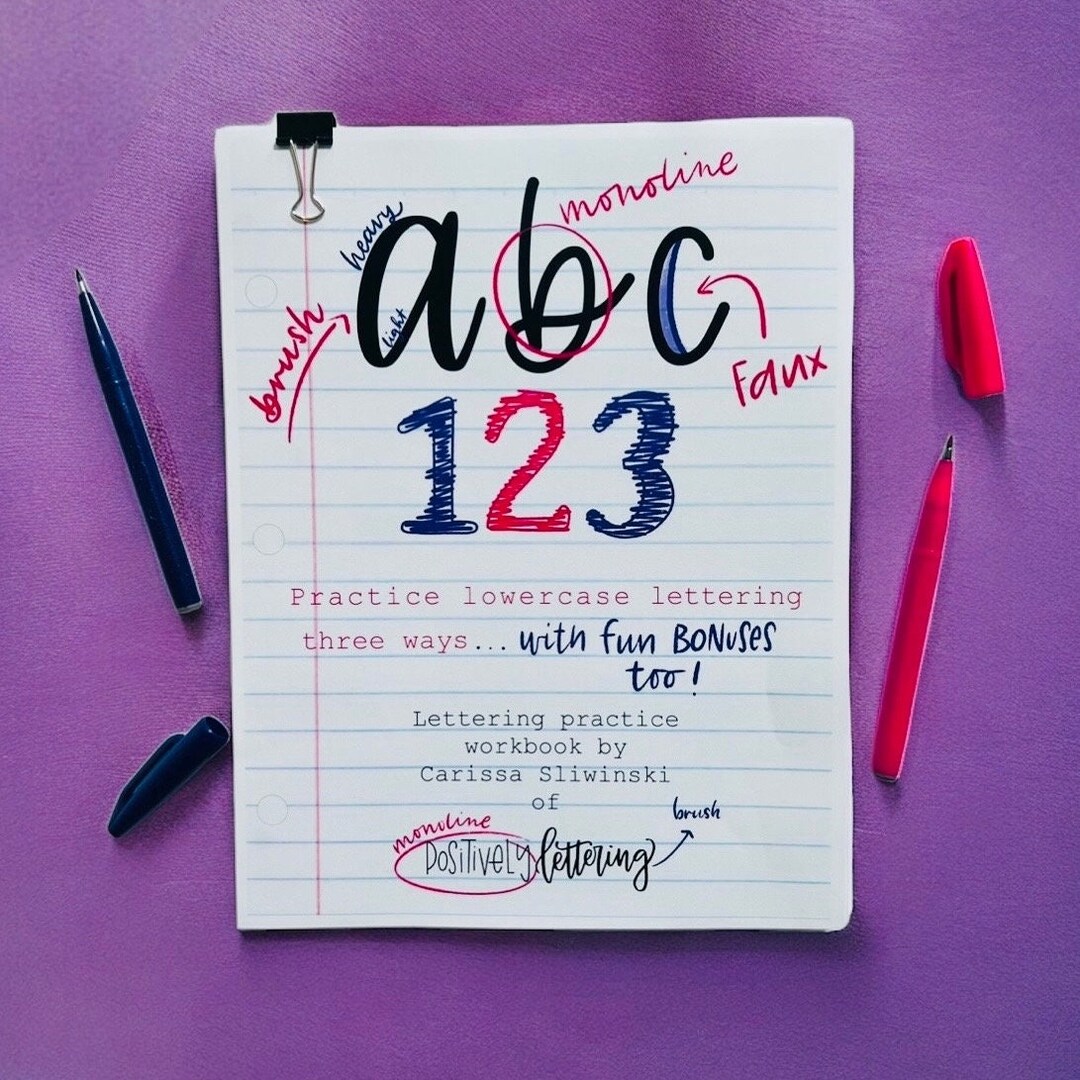 monoline
heavy
abc
light
brush
Faux
123
Practice lowercase lettering
three ways... with fun BONUSES
too!
Lettering practice
workbook by
Carissa Sliwinski
of
brush
monoline
POSITIVELY lettering